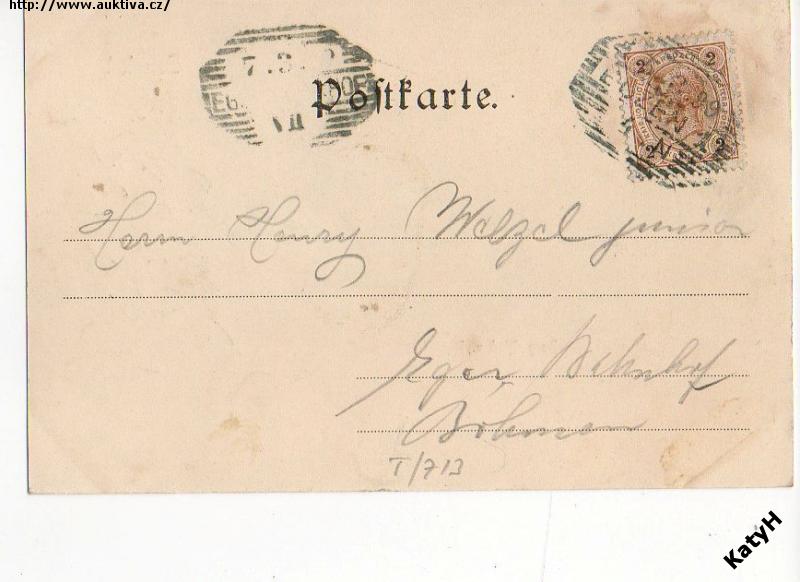 http://www.auktiva.cz/
7.3.
Postkarte.
VII
2 2
2 2
Herrn Henry Welzel junior
Eger, Bahnhof
Böhmen
T/713
KatyH